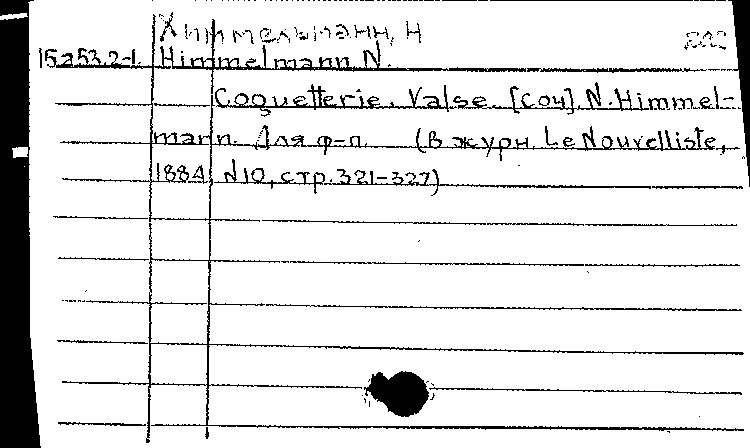 Химмельманн, Н
15253.2-1. Himmelmann, N.
Coquetterie. Valse. [Соч]. N. Himmel-
mann. Для ф-п. (В журн. Le Nouvelliste,
1884, N10, стр. 321-327)